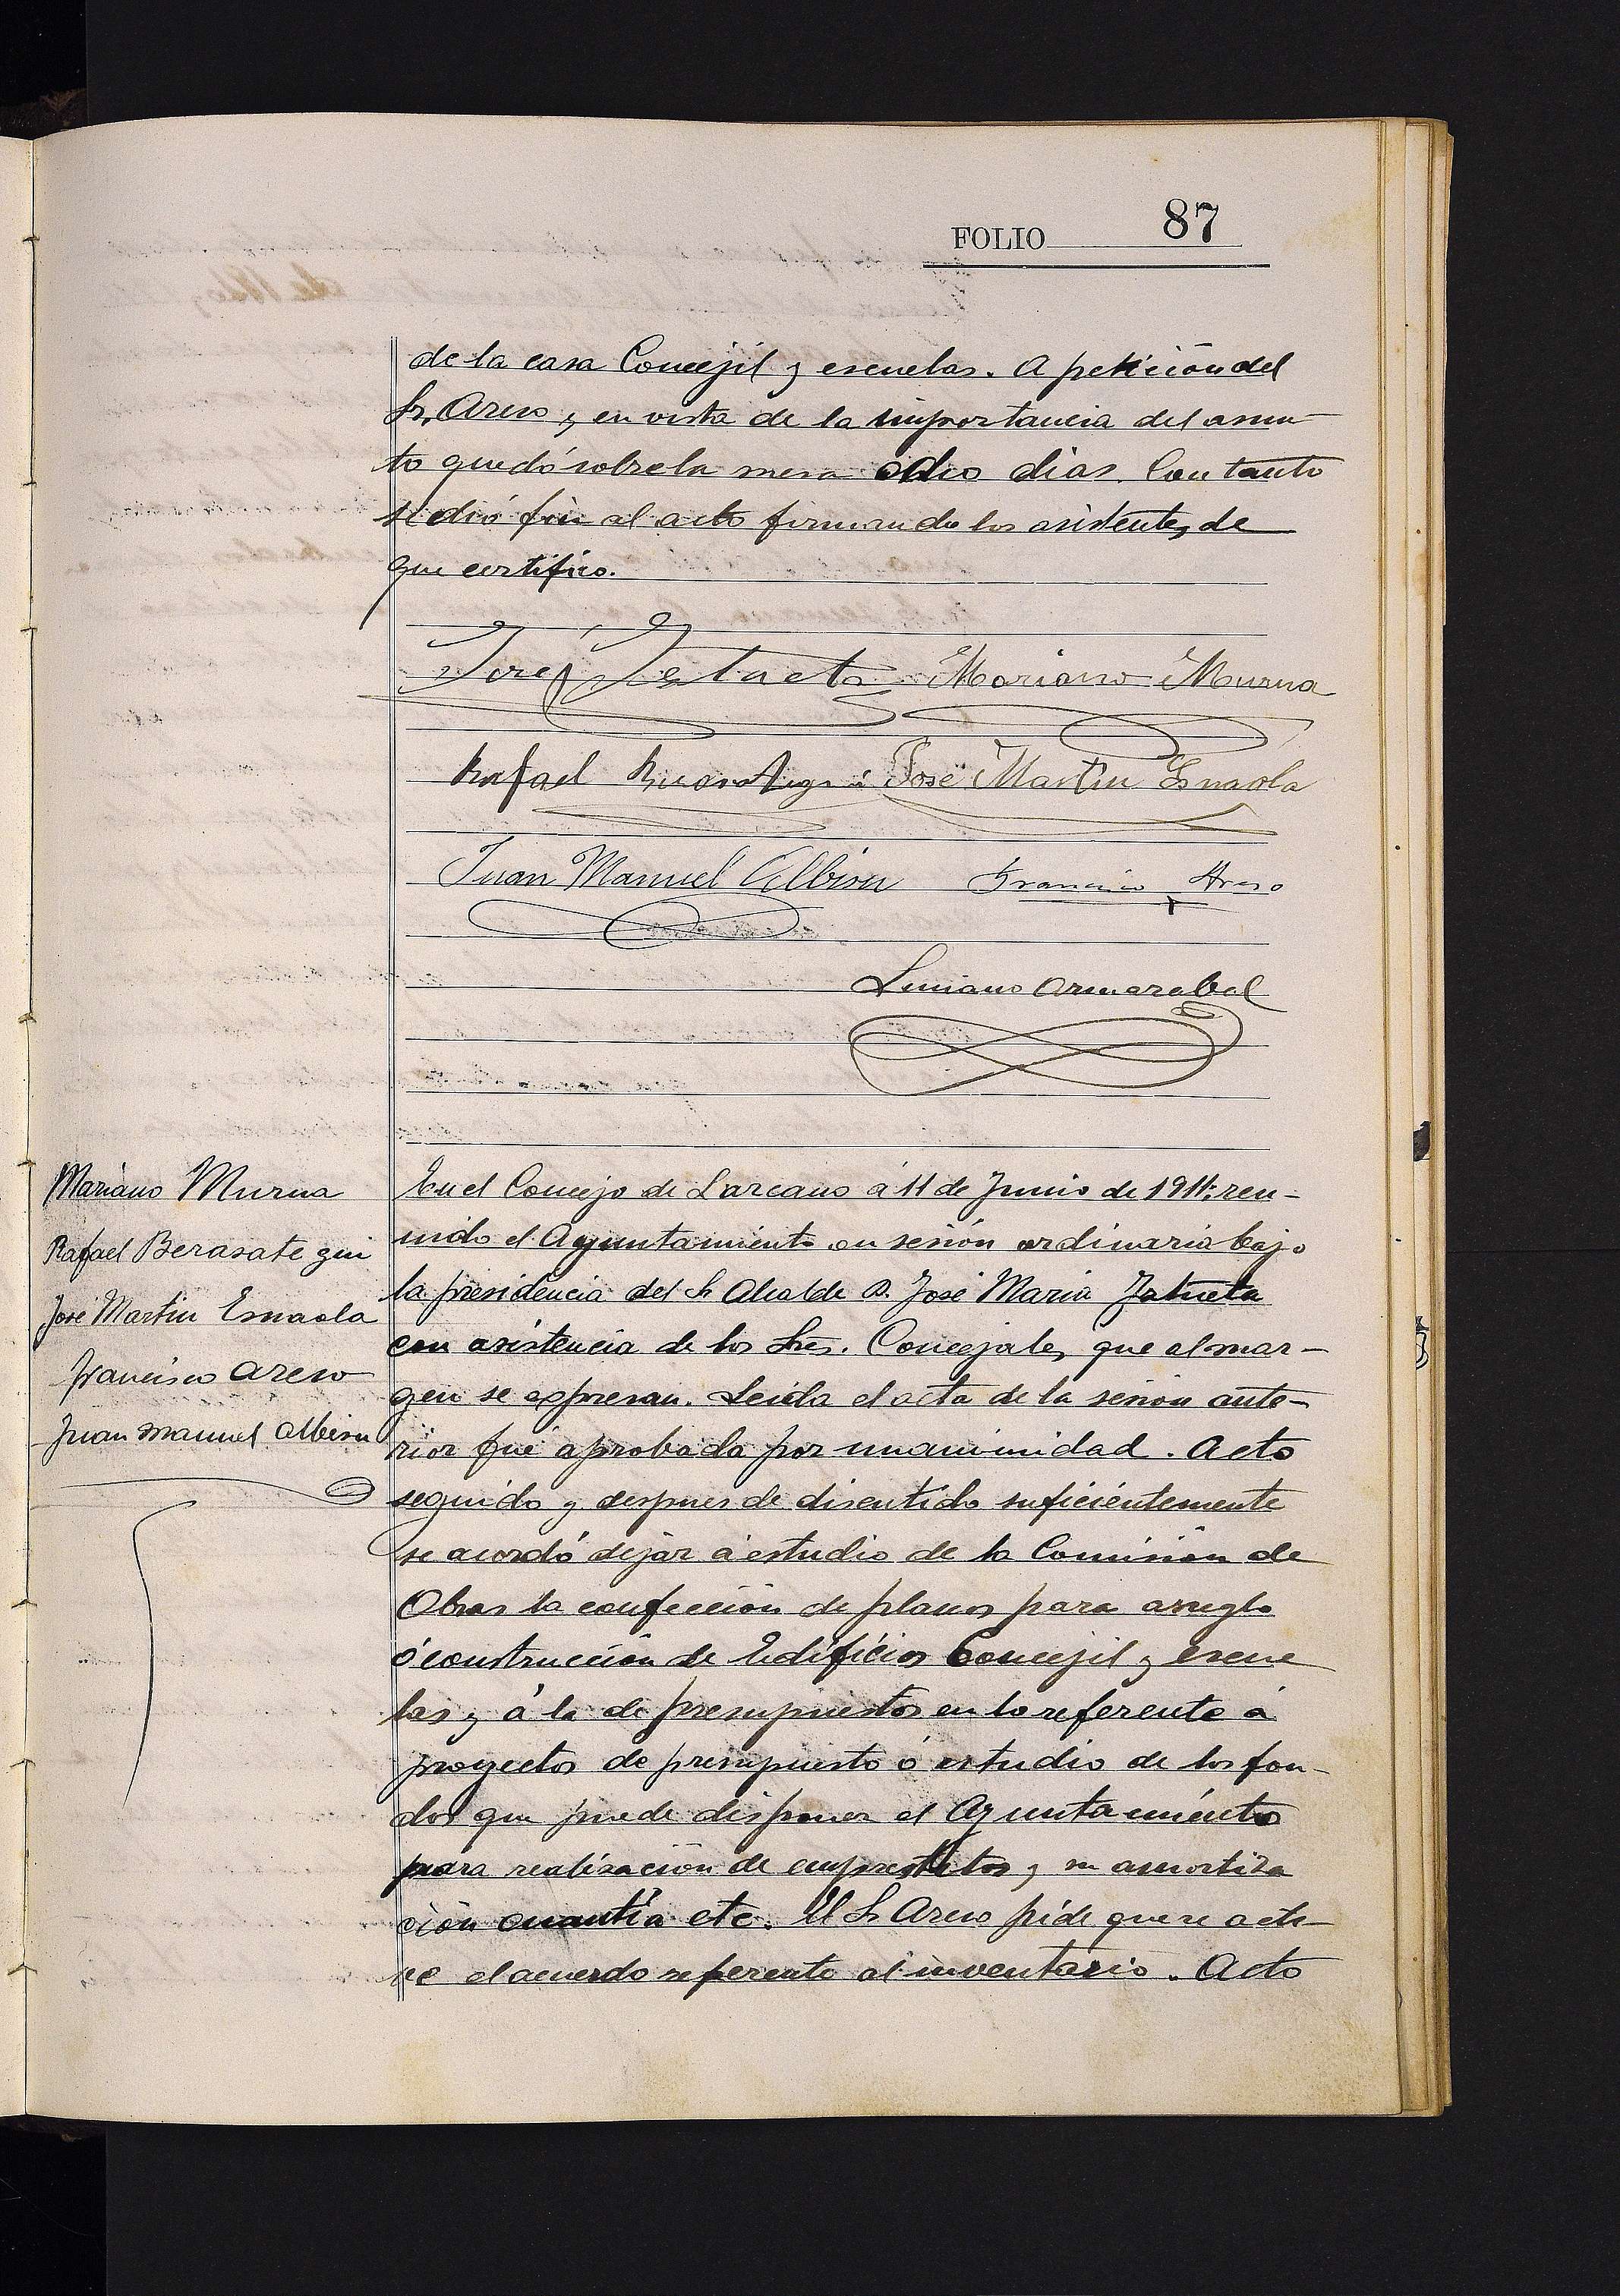 FOLIO 87
de la casa Concejil y escuelas. A petición del
Sr. Areso y en vista de la importancia del asun-
to quedó sobre la mesa ocho dias. Con tanto
se dió fin al acto firmando los asistentes, de
que certifico.
José Zatueta Mariano Murua
Rafael Berasategui José Martin Esnaola
Juan Manuel Albisu Francisco Areso
Luciano
Mariano Murua
Rafael Berasategui
José Martin Esnaola
Francisco Areso
Juan Manuel Albisu
En el Concejo de Lazcano á 11 de Junio de 1911, reu-
nido el Ayuntamiento en sesión ordinaria bajo
la presidencia del Sr Alcalde D. José Maria Zatueta
con asistencia de los Sres. Concejales, que al mar-
gen se expresan. Leida el acta de la sesion ante-
rior fué aprobada por unanimidad. Acto
seguido y despues de discutido suficientemente
se acordó dejar á estudio de la Comisión de
Obras la confección de planos para arreglo
ó construcción de Edificios Concejil y escue
las y á la de presupuestos en lo referente á
proyectos de presupuesto ó estudio de los fon-
dos que puede disponer el Ayuntamiento
para realización de emprestitos y su amortiza
ción cuantía etc. El Sr Areso pide que se acti-
ve el acuerdo referente al inventario. Acto